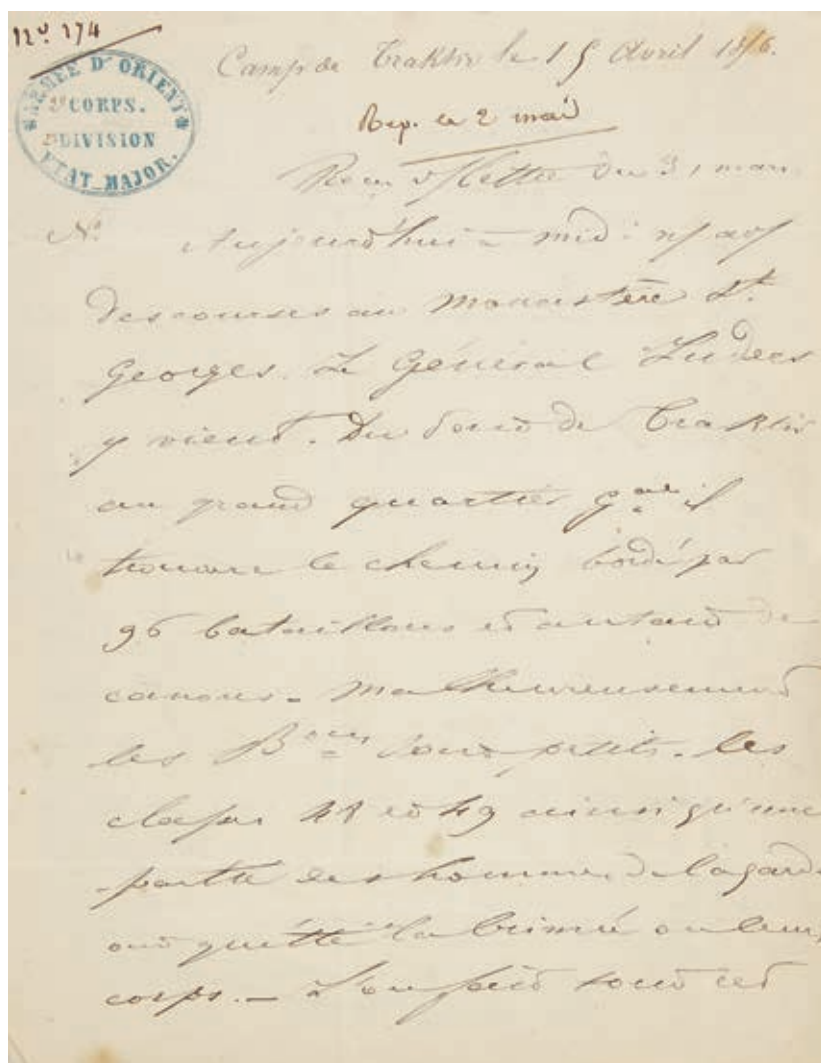 Nº 174
ARMÉE D'ORIENT
2e CORPS.
2e DIVISION
ETAT MAJOR.
Camp de Traktir le 15 Avril 1856.
Rep. le 2 mai
Recu vf lettre du 31 mars
Nº
Aujourd'hui à midi nf avf
des courses au monastère St.
Georges. Le Général Luders
y vient. Du fond de Traktir
au grand quartier gal il
trouvera le chemin bordé par
96 bataillons et autant de
canons. Malheureusement
les Bons sont petits. les
classes 48 et 49 ainsi qu'une
partie des hommes de la garde
ont quitté la Crimée ou leurs
corps. _ L'on fait tout cet